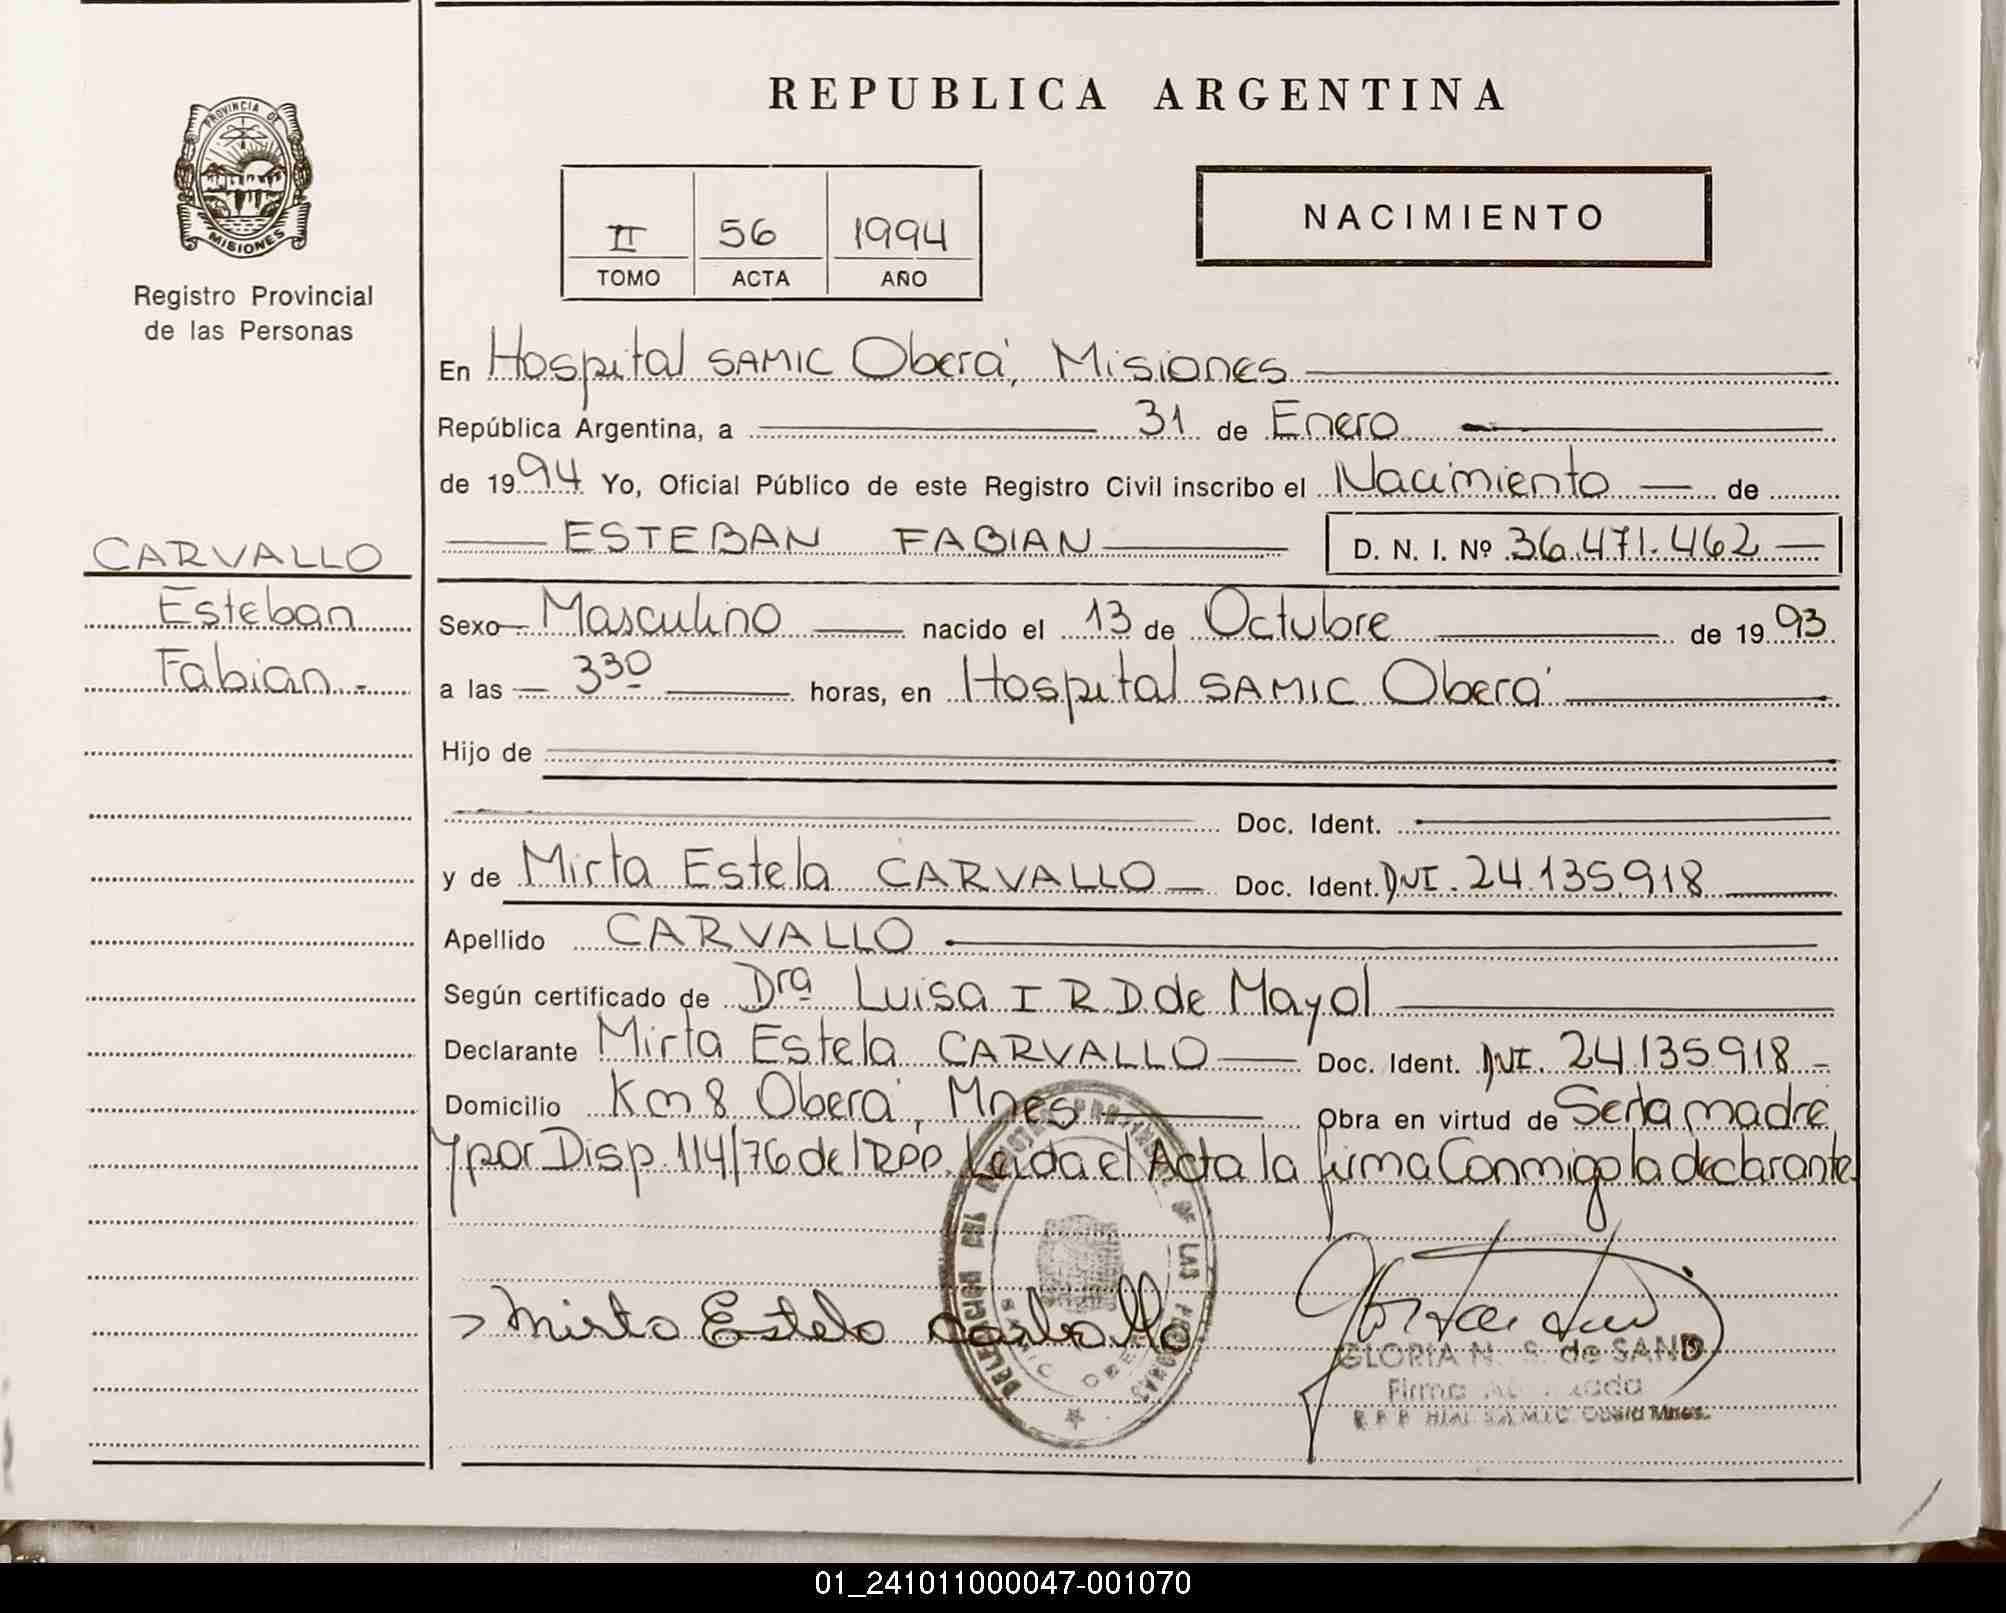 REPUBLICA ARGENTINA
PROVINCIA DE
MISIONES
Registro Provincial
de las Personas
II 56 1994
TOMO ACTA AÑO
NACIMIENTO
En Hospital SAMIC Oberá, Misiones
República Argentina, a 31 de Enero
de 1994 Yo, Oficial Público de este Registro Civil inscribo el Nacimiento de
CARVALLO
Esteban
Fabian.-
ESTEBAN FABIAN D. N. I. Nº 36.471.462
Sexo Masculino nacido el 13 de Octubre de 1993
a las 330 horas, en Hospital SAMIC Oberá
Hijo de
Doc. Ident.
y de Mirta Estela CARVALLO Doc. Ident. DNI. 24.135.918
Apellido CARVALLO
Según certificado de Dra Luisa I R.D. de Mayol
Declarante Mirta Estela CARVALLO Doc. Ident. DNI. 24.135.918
Domicilio Km 8 Oberá, Mnes Obra en virtud de Ser la madre
y por Disp. 114/76 del RPP. Leida el Acta la firma Conmigo la declarante
Mirta Estela Carvallo
GLORIA N. S. de SAND
Firma
R P P SAMIC Oberá Mnes.
01_241011000047-001070